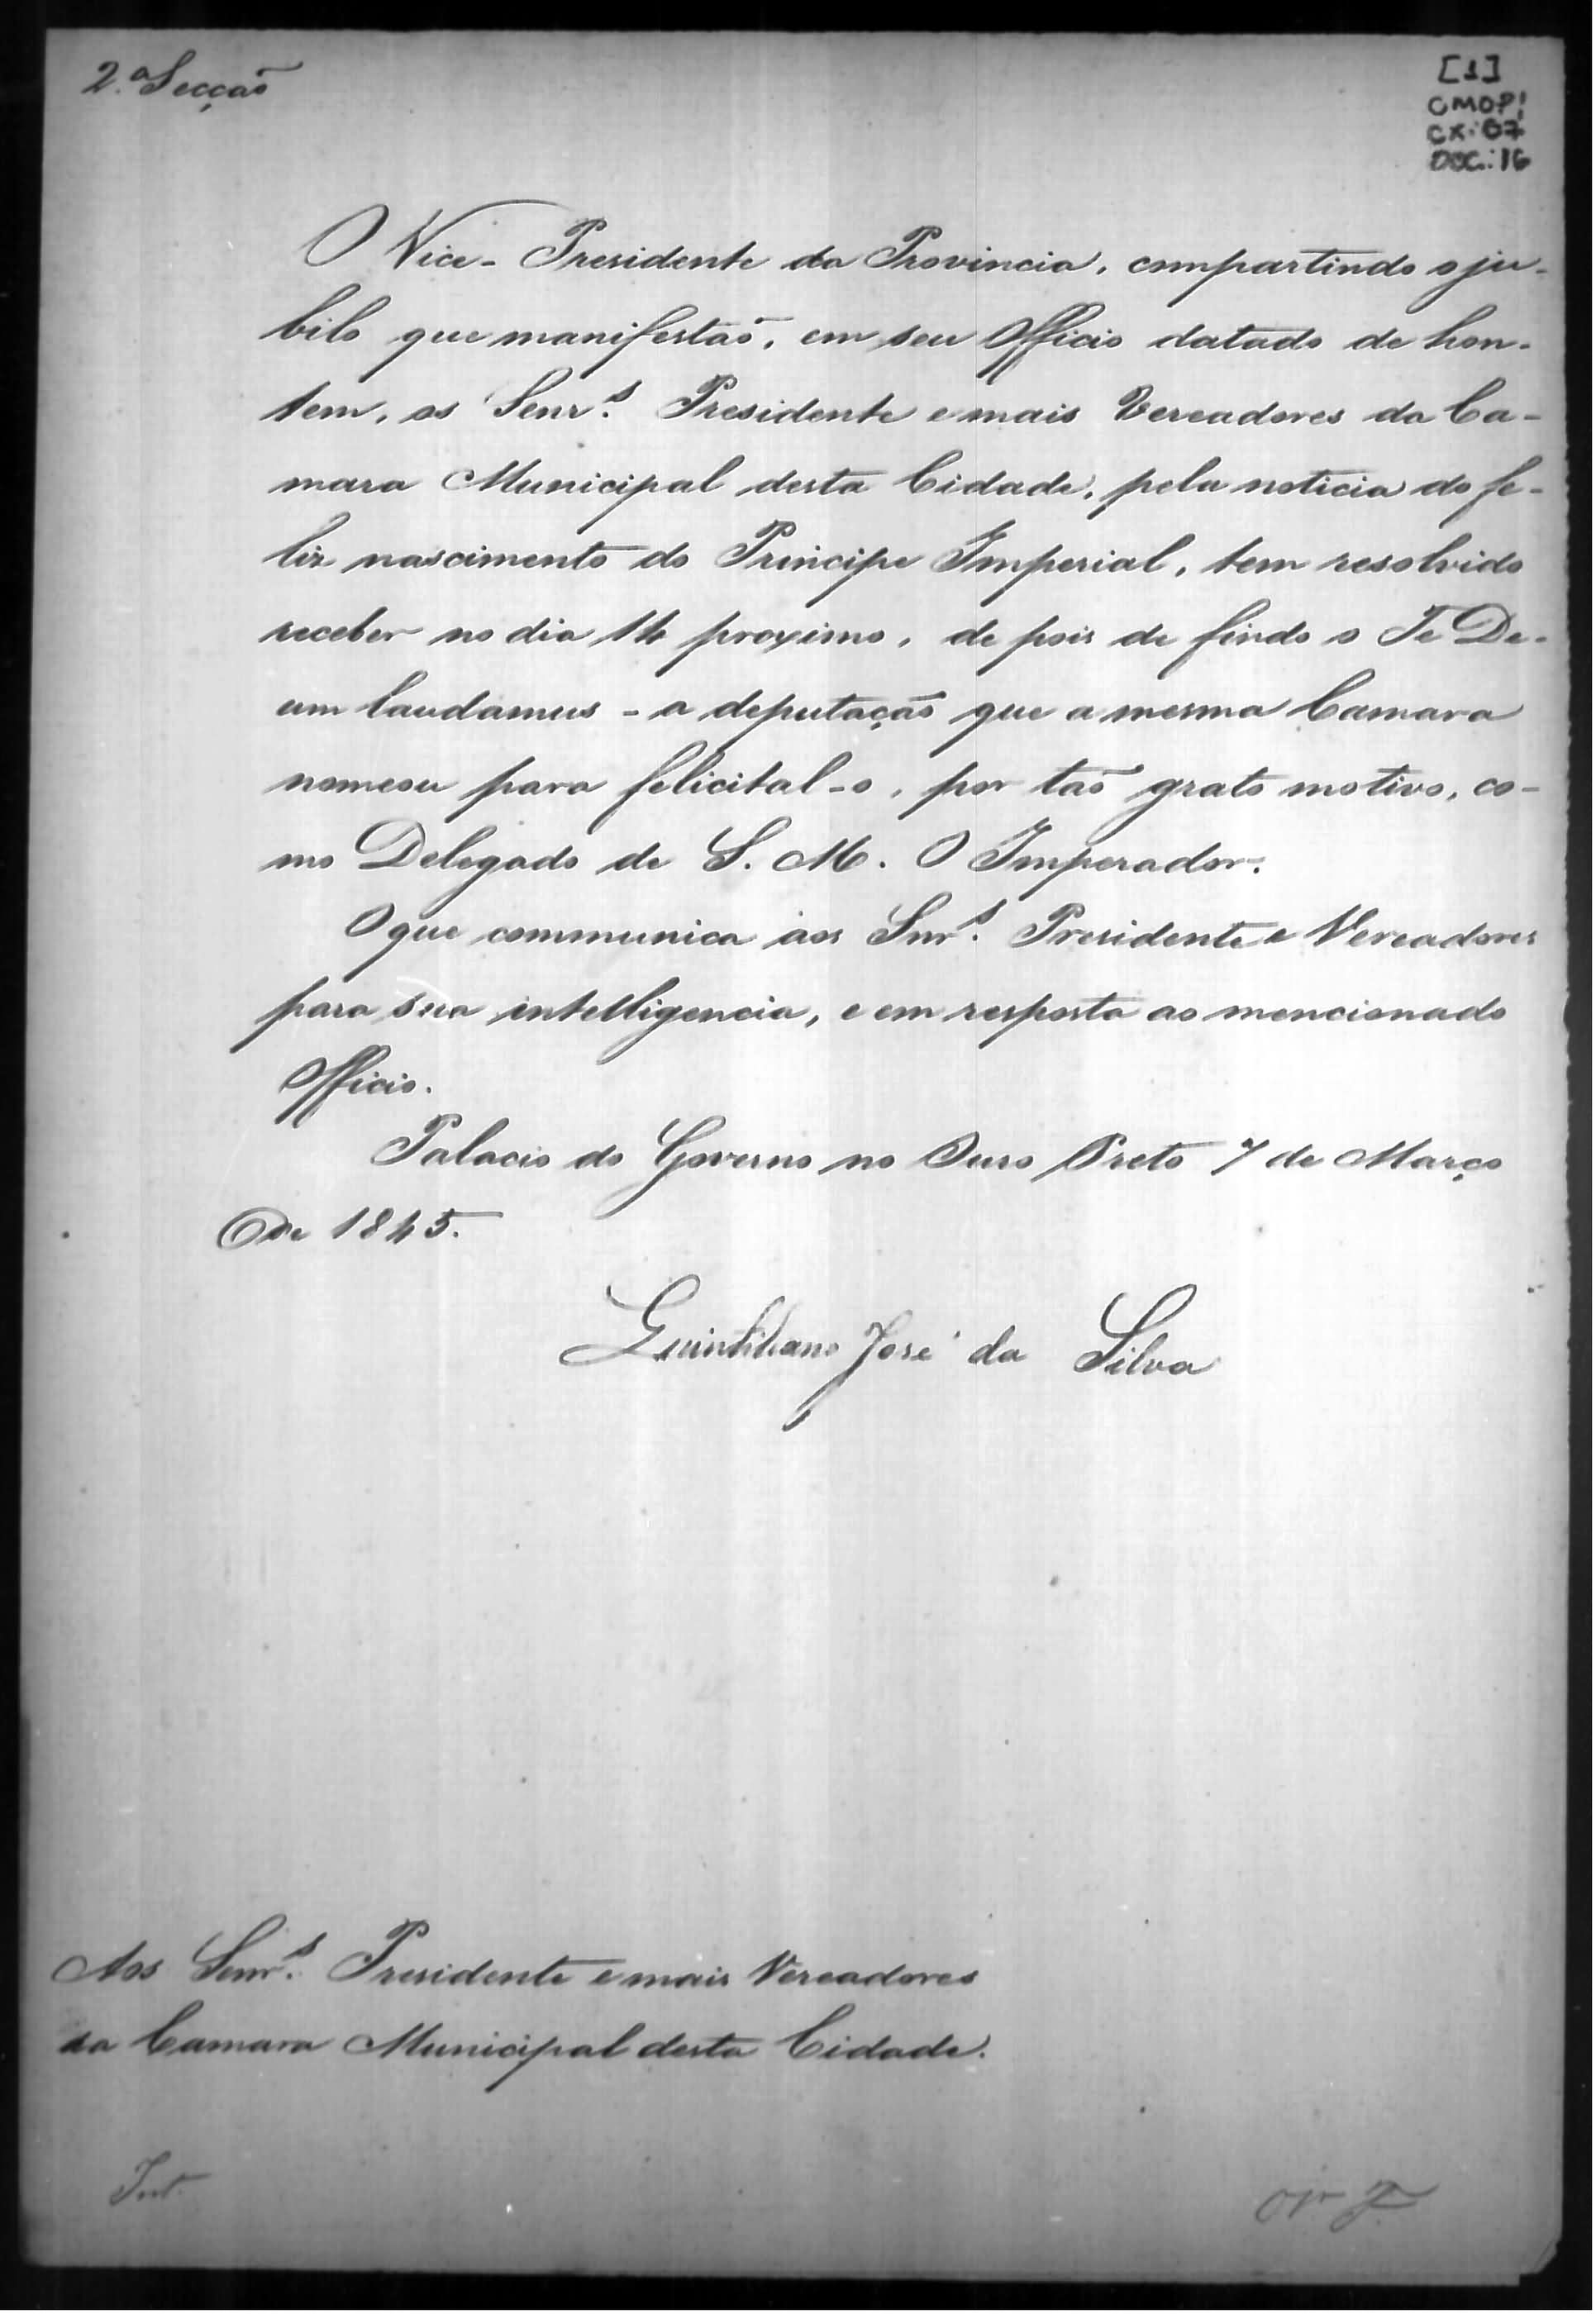 2.ª Secção
[1]
CMOP!
CX: 07
DOC.: 16
O Vice-Presidente da Provincia, compartindo o ju-
bilo que manifestaõ, em seu Officio datado de hon-
tem, os Senr.s Presidente e mais Vereadores da Ca-
mara Municipal desta Cidade, pela noticia do fe-
liz nascimento do Principe Imperial, tem resolvido
receber no dia 14 proximo, de pois de findo o Te De-
um laudamus - a deputaçaõ que a mesma Camara
nomeou para felicital-o, por taõ grato motivo, co-
mo Delegado de S. M. O Imperador.
O que communica aos Snr.s Presidente e Vereadores
para sua intelligencia, e em resposta ao mencionado
Officio.
Palacio do Governo no Ouro Preto 7 de Março
de 1845.
Quintiliano José da Silva
Aos Senr.s Presidente e mais Vereadores
da Camara Municipal desta Cidade.